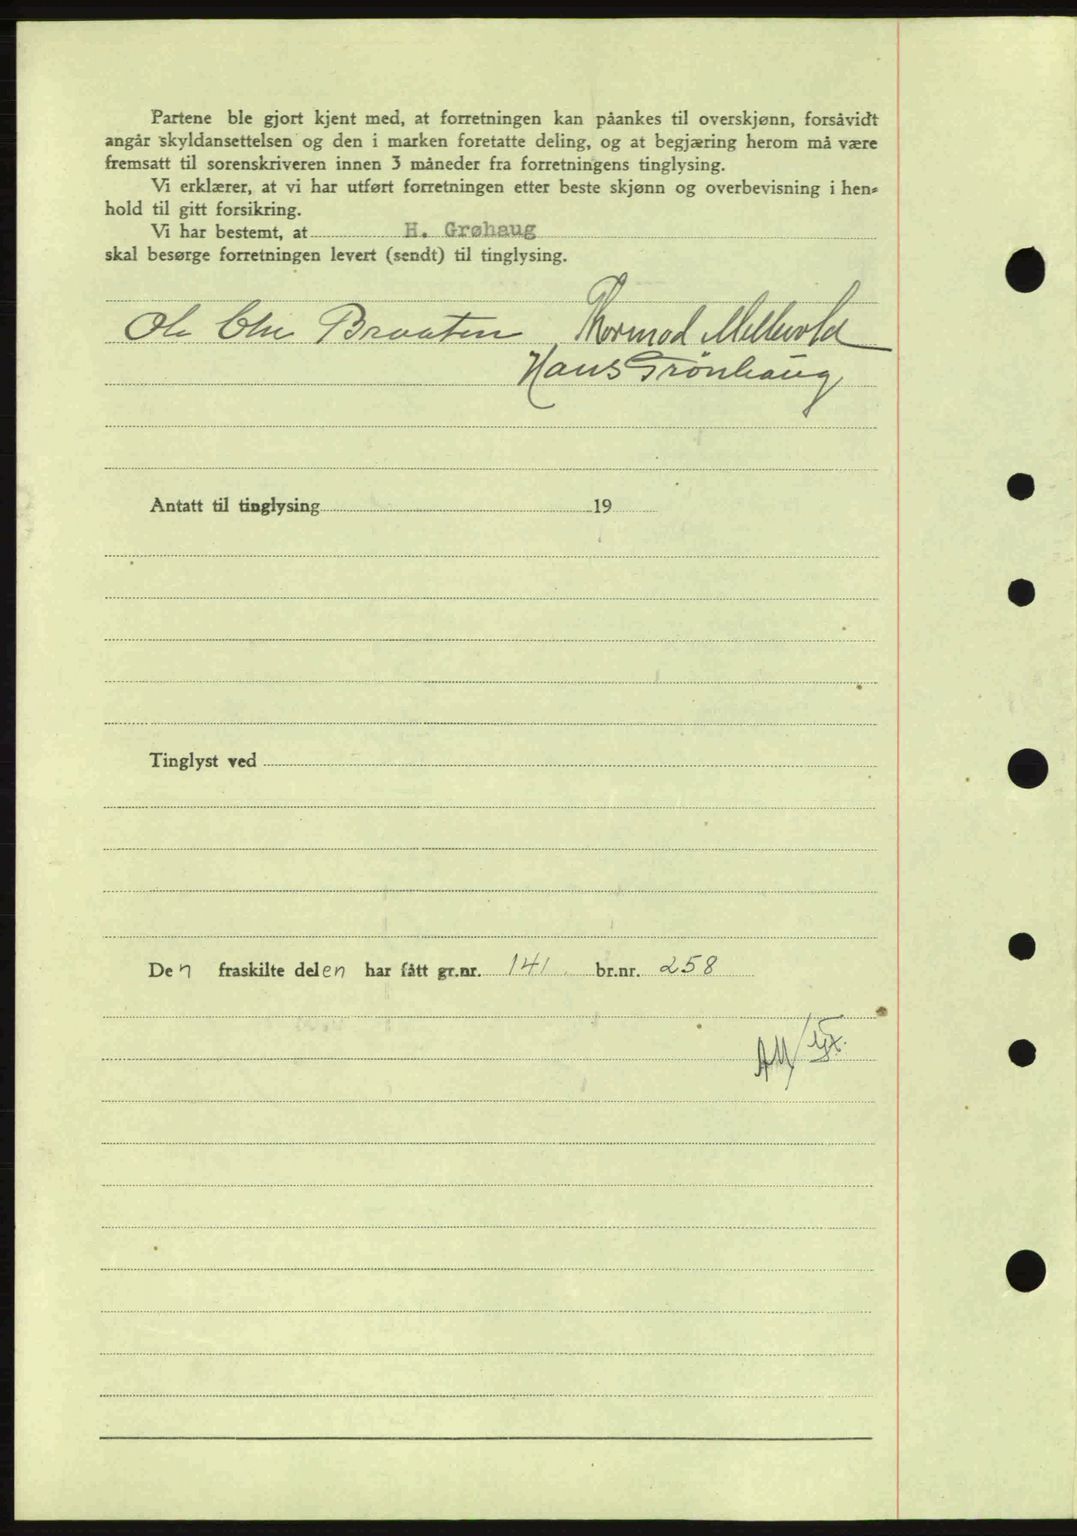 Partene ble gjort kjent med, at forretningen kan påankes til overskjønn, forsåvidt
angår skyldansettelsen og den i marken foretatte deling, og at begjæring herom må være
fremsatt til sorenskriveren innen 3 måneder fra forretningens tinglysing.
Vi erklærer, at vi har utført forretningen etter beste skjønn og overbevisning i hen=
hold til gitt forsikring.
Vi har bestemt, at H. Grøhaug
skal besørge forretningen levert (sendt) til tinglysing.
Ole Chr Braaten Thormod Mellvold
Hans Grönhaug
Antatt til tinglysing 19
Tinglyst ved
Den fraskilte delen har fått gr.nr. 141 br.nr. 258